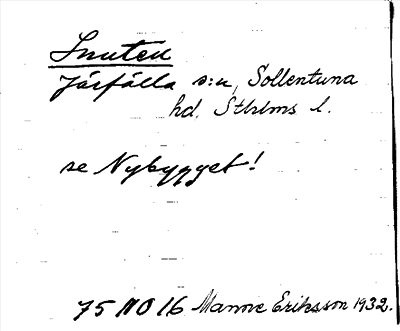 Snuten
Järfälla s:n, Sollentuna
hd. Sthlms l.
se Nybygget!
75 NO 16 Manne Eriksson 1932.